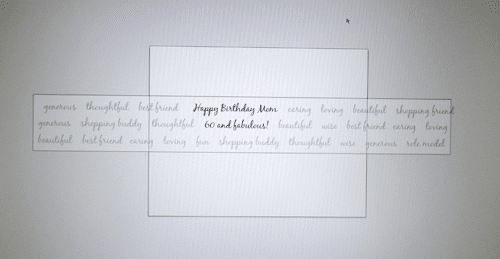 generous thoughtful best friend Happy Birthday Mom caring loving beautiful shopping friend
generous shopping buddy thoughtful 60 and fabulous! beautiful wise best friend caring loving
beautiful best friend caring loving fun shopping buddy thoughtful wise generous role model